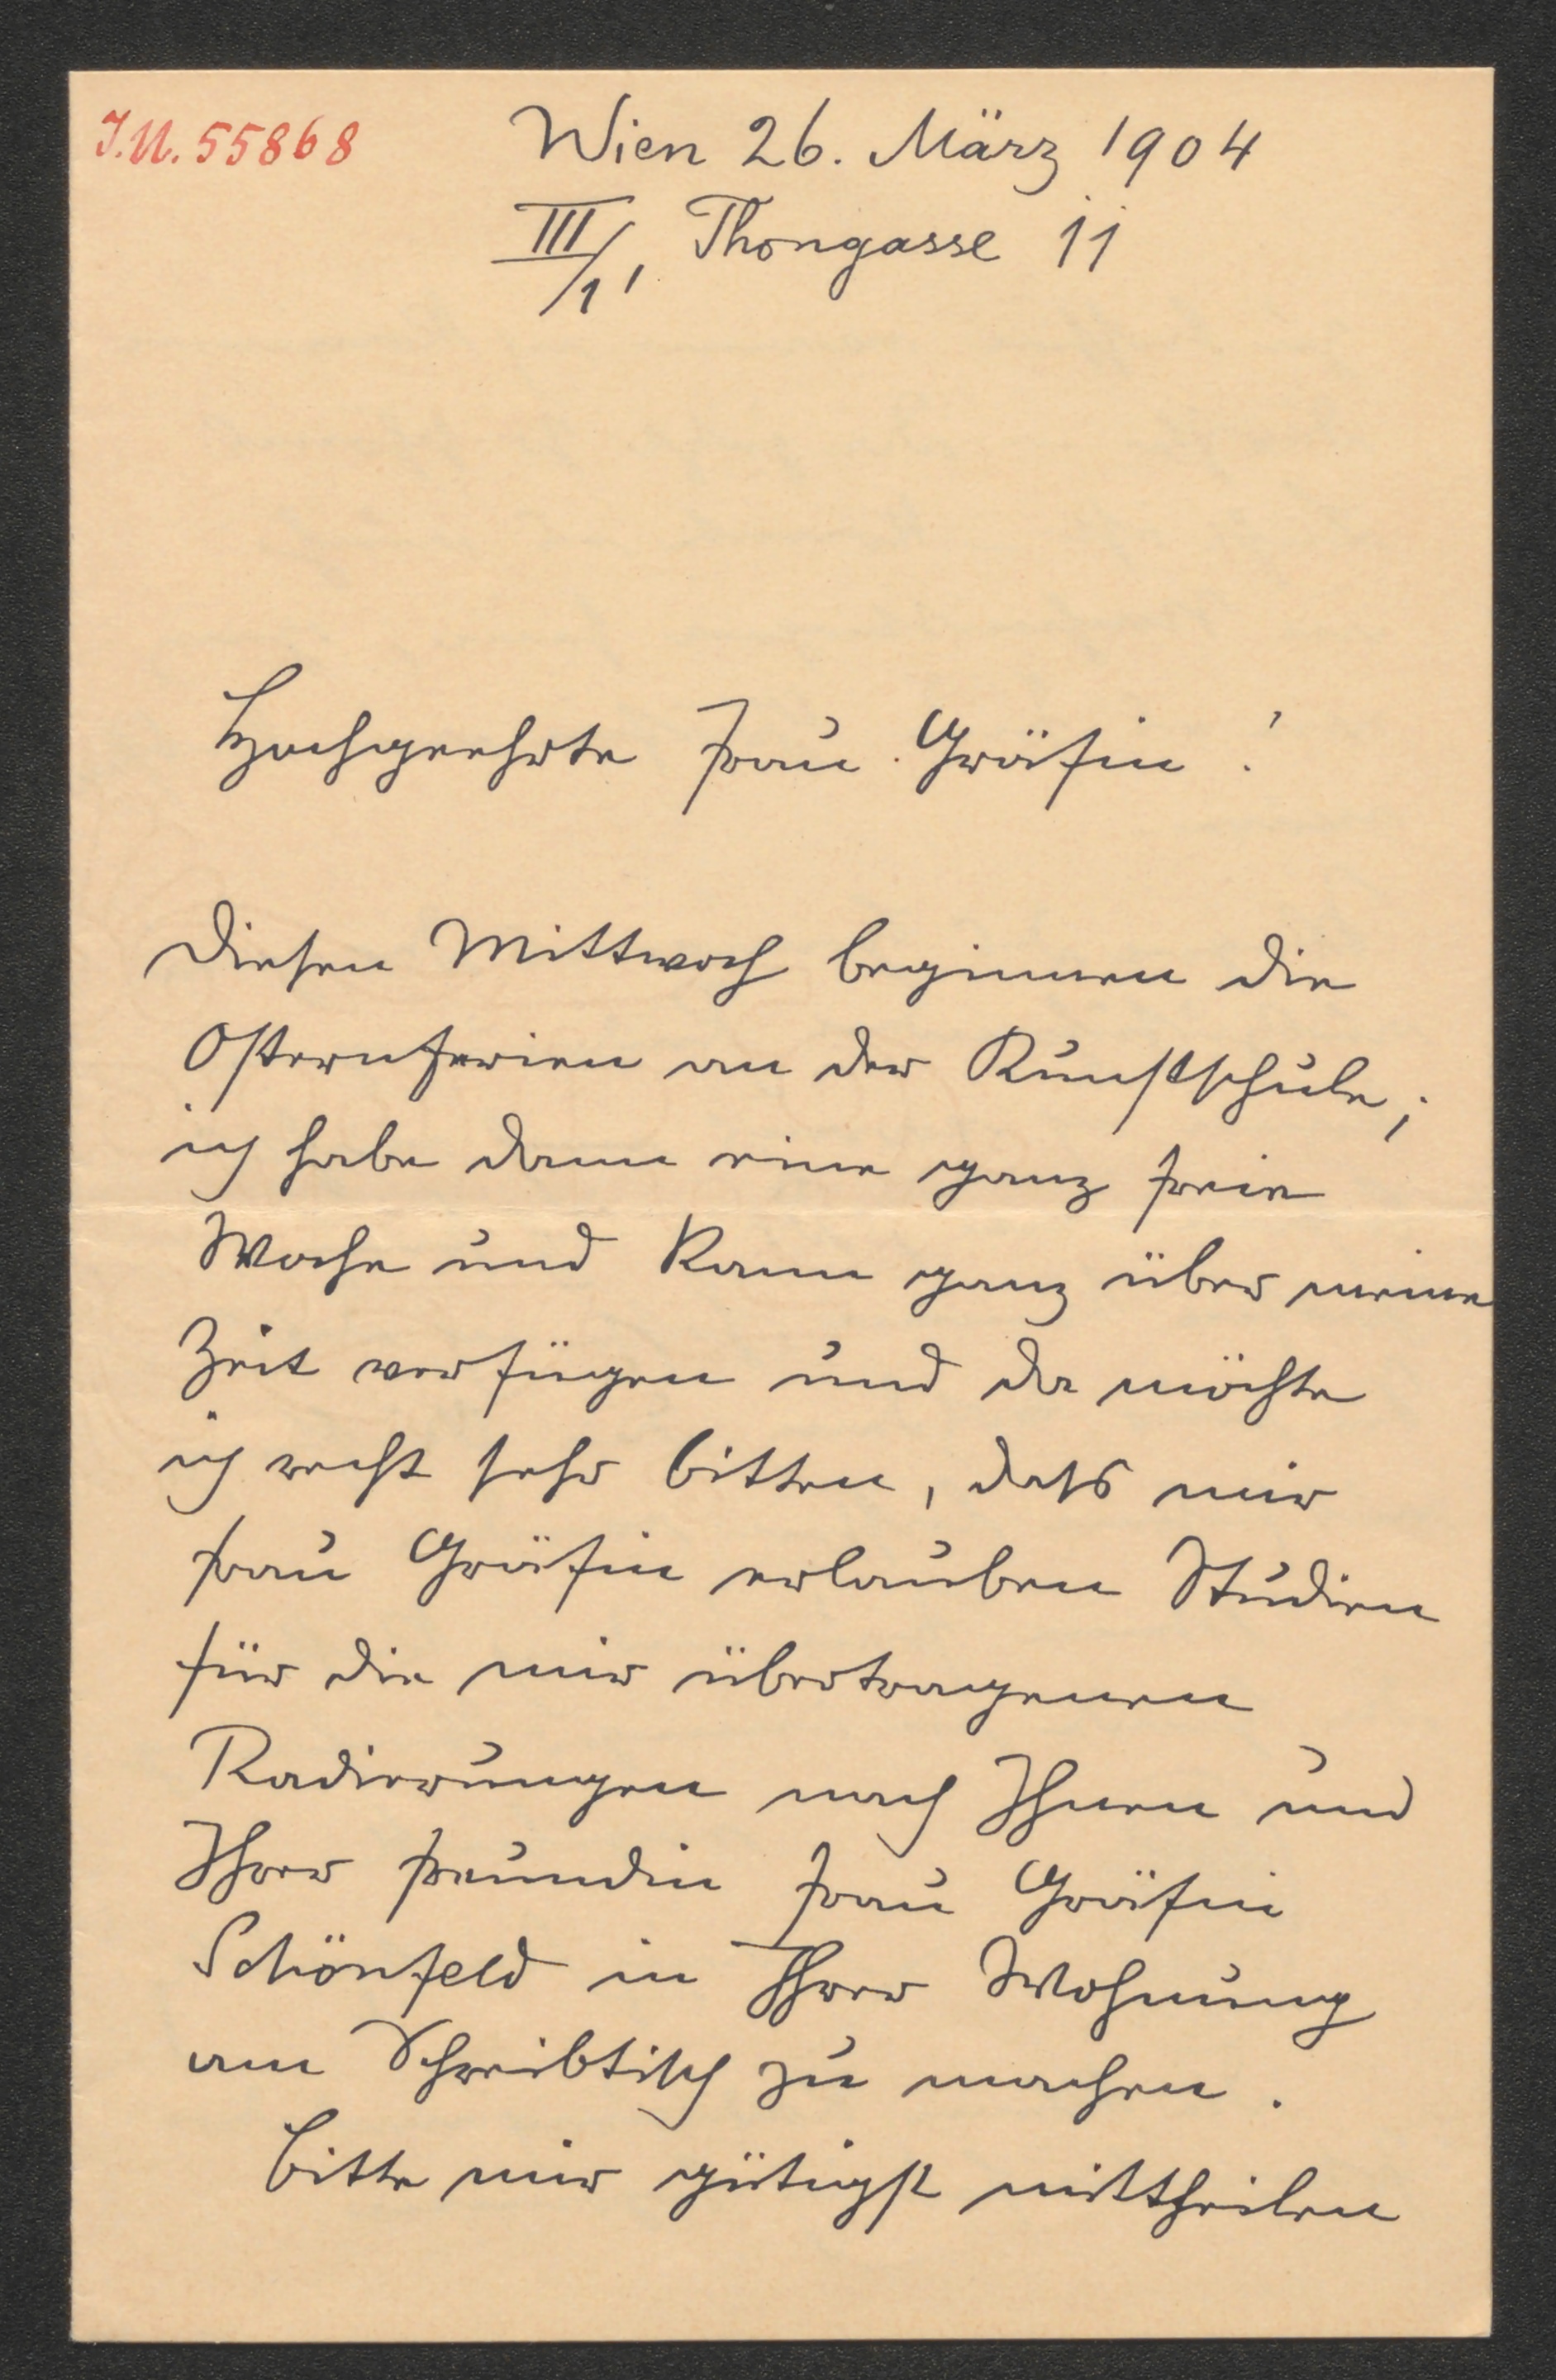 J.N. 55868
Wien 26. März 1904
III/1, Thongasse 11
Hochgeehrte Frau Gräfin!
Diesen Mittwoch beginnen die
Osternferien an der Kunstschule;
ich habe dann eine ganz freie
Woche und kann ganz über meine
Zeit verfügen und da möchte
ich recht sehr bitten, dass mir
Frau Gräfin erlauben Studien
für die mir übertragenen
Radierungen nach Ihnen und
Ihrer Freundin Frau Gräfin
Schönfeld in Ihrer Wohnung
am Schreibtisch zu machen.
Bitte mir gütigst mittheilen